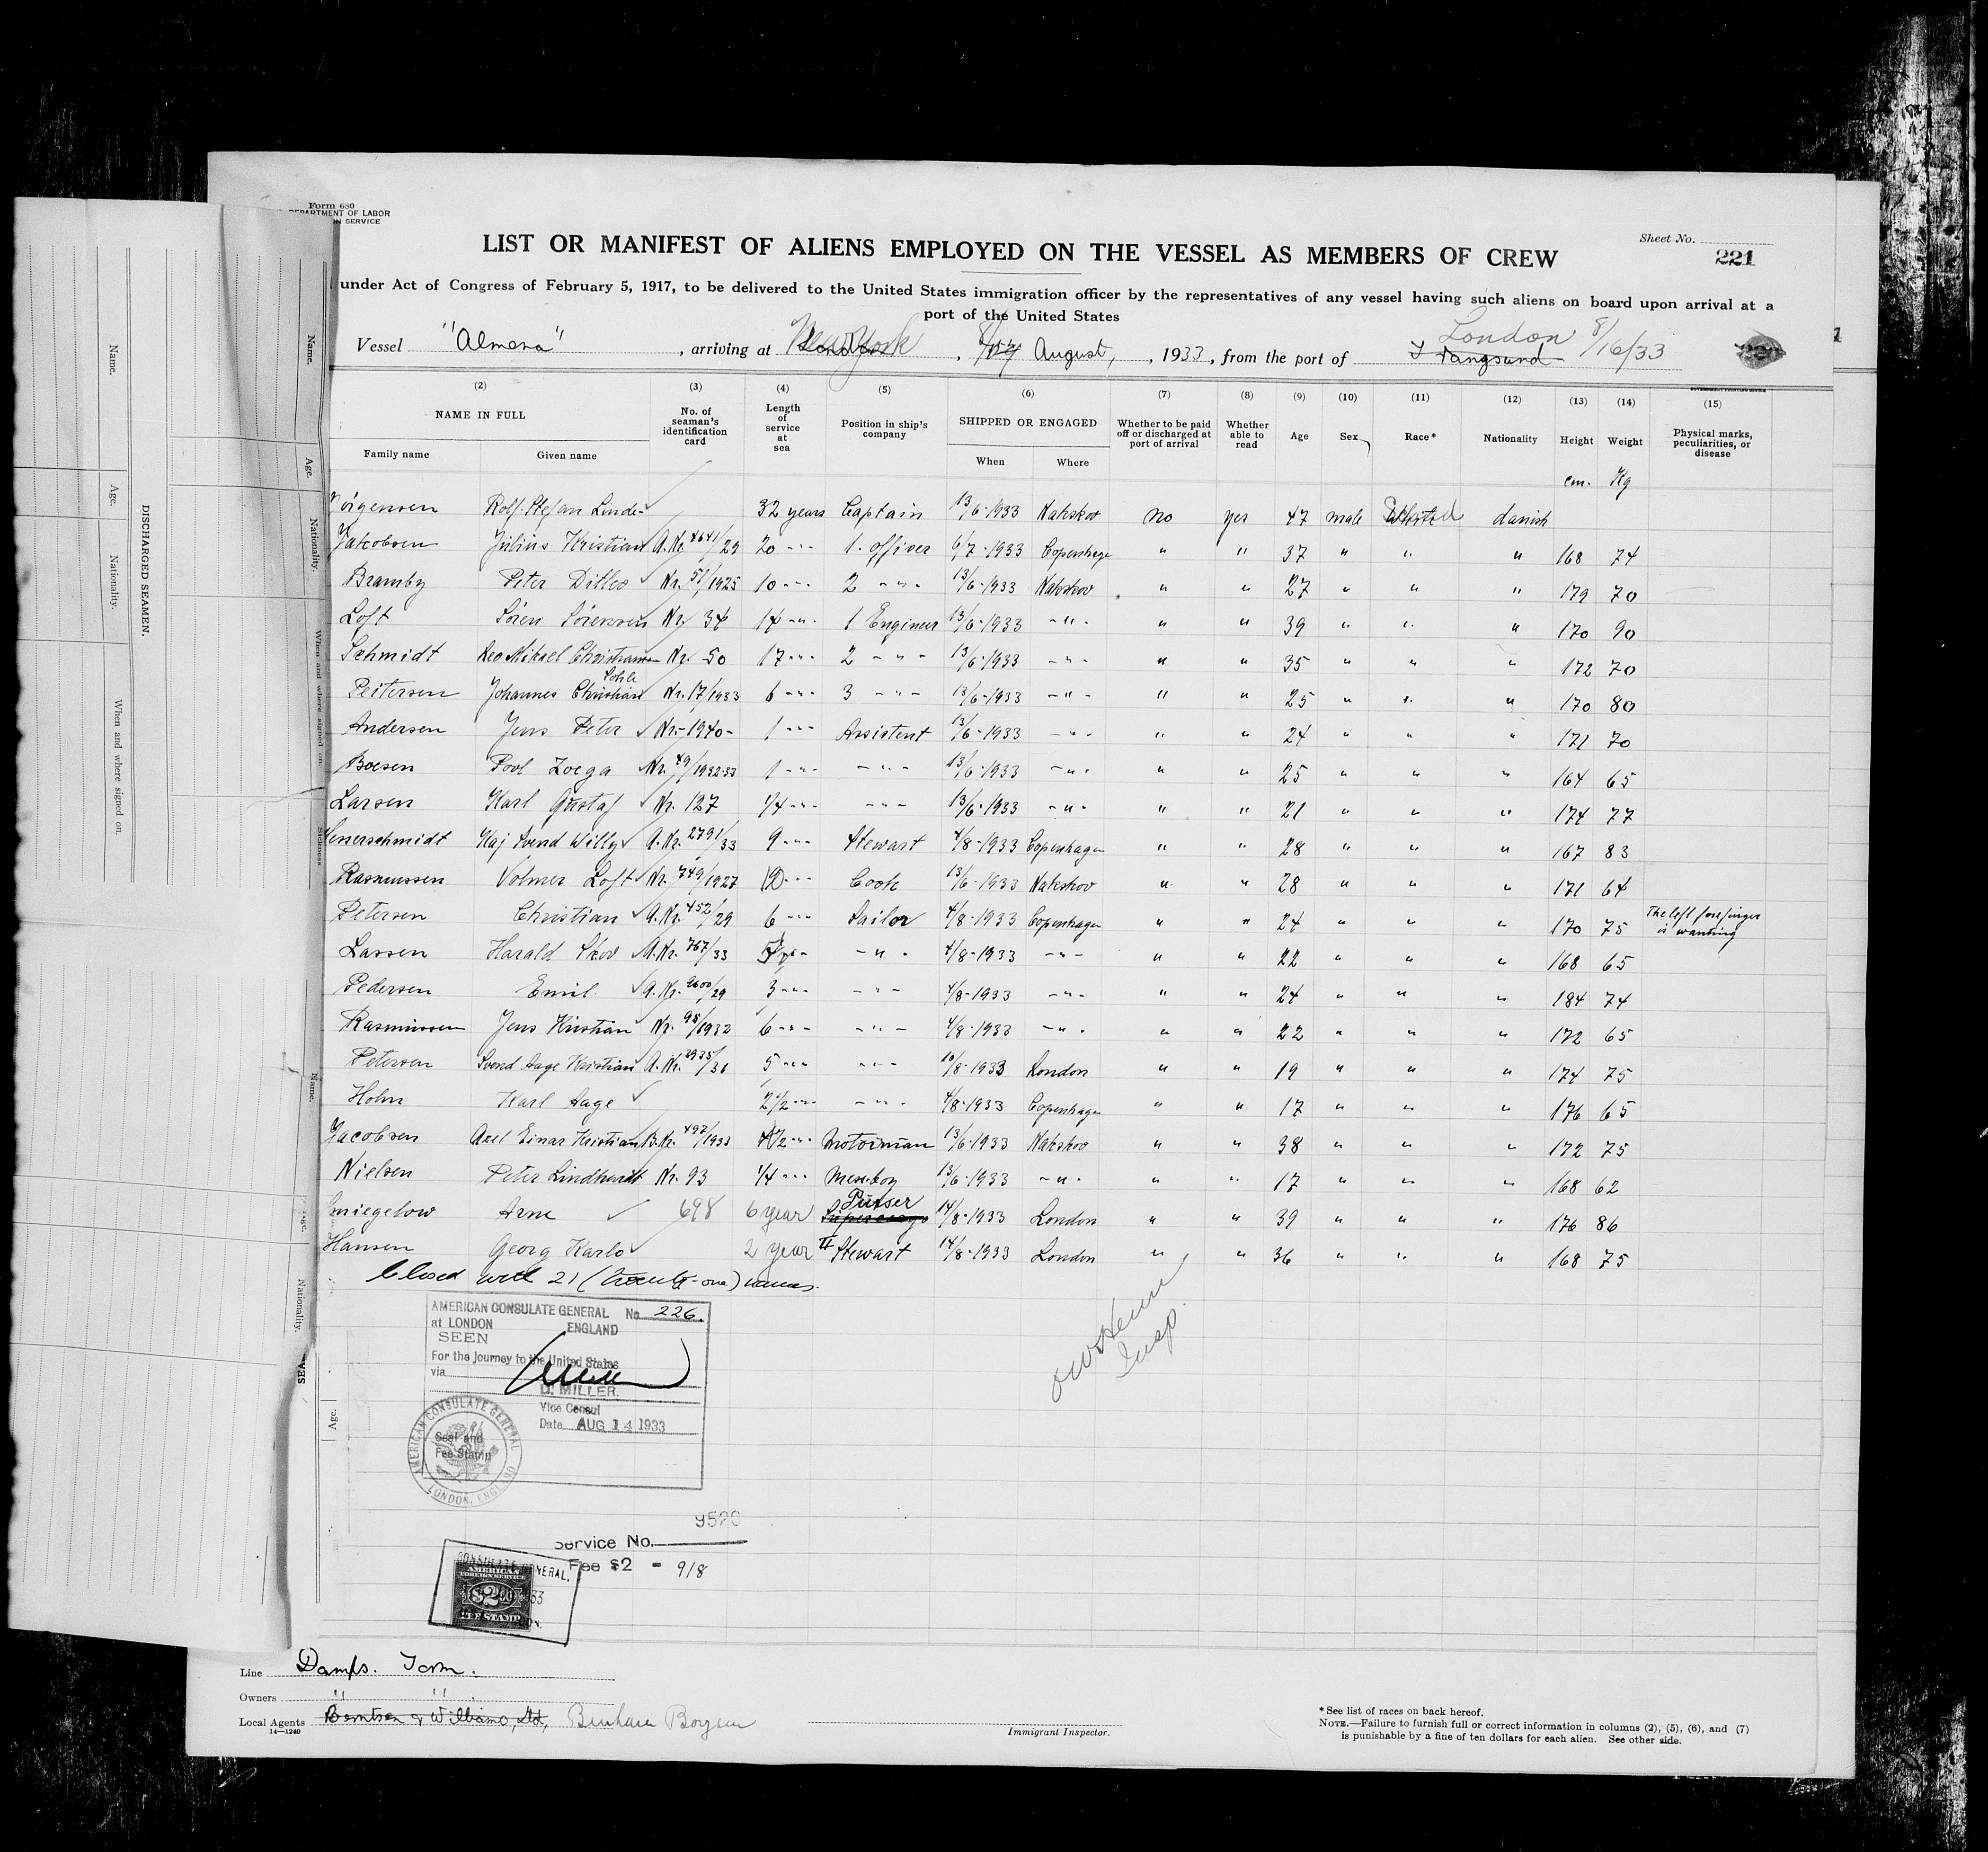 Form 680
DEPARTMENT OF LABOR
N SERVICE
Sheet No.
221
LIST OR MANIFEST OF ALIENS EMPLOYED ON THE VESSEL AS MEMBERS OF CREW
under Act of Congress of February 5, 1917, to be delivered to the United States immigration officer by the representatives of any vessel having such aliens on board upon arrival at a
port of the United States
Vessel "Almena", arriving at New York, August, 1933, from the port of London 8/16/33
(2) (3) (4) (5) (6) (7) (8) (9) (10) (11) (12) (13) (14) (15)
NAME IN FULL
Family name Given name
No. of seaman's identification card
Length of service at sea
Position in ship's company
SHIPPED OR ENGAGED
When Where
Whether to be paid off or discharged at port of arrival
Whether able to read
Age Sex Race* Nationality Height Weight
Physical marks, peculiarities, or disease
cm. Kg
Jörgensen Rolf Stefan Linde 32 years Captain 13/6-1933 Nakskov no yes 47 male danish
Jakobsen Julius Kristian A.Nr. 4641/29 20 -"- 1. officer 6/7-1933 Copenhage " " 37 " " " 168 74
Bramby Peter Ditlev Nr. 51/1925 10 -"- 2 -"- 13/6-1933 Nakskov " " 27 " " " 179 70
Loft Sören Sörensen Nr. 34 14 -"- 1 Engineer 13/6-1933 -"- " " 39 " " " 170 90
Schmidt Leo Mikael Christiansen Nr. 50 17 -"- 2 -"- 13/6-1933 -"- " " 35 " " " 172 70
Peitersen Johannes Christian Nr. 17/1933 6 -"- 3 -"- 13/6-1933 -"- " " 25 " " " 170 80
Andersen Jens Peter Nr.-1940- 1 -"- Assistent 13/6-1933 -"- " " 24 " " " 171 70
Boesen Povl Zoega Nr. 49/1932-33 1 -"- -"- 13/6-1933 -"- " " 25 " " " 164 65
Larsen Karl Gustaf Nr. 127 1/4 -"- -"- 13/6-1933 -"- " " 21 " " " 174 77
Kaj Svend Willy A.Nr. 2791/33 9 -"- Stewart 4/8-1933 Copenhagen " " 28 " " " 167 83
Rasmussen Volmer Loft Nr. 749/1927 12 -"- Cook 13/6-1933 Nakskov " " 28 " " " 171 64
Petersen Christian A.Nr. 452/29 6 -"- Sailor 4/8-1933 Copenhagen " " 24 " " " 170 75 The left forefinger is wanting
Lassen Harald Skov A.Nr. 767/33 -"- 4/8-1933 -"- " " 22 " " " 168 65
Pedersen Emil A.Nr. 2600/29 3 -"- -"- 4/8-1933 -"- " " 24 " " " 184 74
Rasmussen Jens Kristian Nr. 98/1932 6 -"- -"- 4/8-1933 -"- " " 22 " " " 172 65
Petersen Svend Aage Kristian A.Nr. 2935/31 5 -"- -"- 10/8-1933 London " " 19 " " " 174 75
Holm Karl Aage 2 1/2 -"- -"- 4/8-1933 Copenhagen " " 17 " " " 176 65
Jacobsen Axel Einar Kristian B.Nr. 497/1933 4 1/2 -"- Motorman 13/6-1933 Nakskov " " 38 " " " 172 75
Nielsen Peter Lindhardt Nr. 93 1/4 -"- Messboy 13/6-1933 -"- " " 17 " " " 168 62
Smiegelow Arne 698 6 year Purser 14/8-1933 London " " 39 " " " 176 86
Hansen Georg Karlo 2 year II Stewart 14/8-1933 London " " 36 " " " 168 75
Closed with 21 (twenty-one) names.
AMERICAN CONSULATE GENERAL No. 226.
at LONDON ENGLAND
SEEN
For the journey to the United States
via
D. MILLER.
Vice Consul
Date AUG 14 1933
Seal and
Fee Stamp
AMERICAN CONSULATE GENERAL
LONDON, ENGLAND
Insp.
9520
Service No.
Fee $2 = 9/8
AMERICAN
FOREIGN SERVICE
$2.00
FEE STAMP
Line Damps. Torm.
Owners " "
Local Agents Berntsen & Williams, Ltd,
14—1240
Immigrant Inspector.
* See list of races on back hereof.
NOTE.—Failure to furnish full or correct information in columns (2), (5), (6), and (7)
is punishable by a fine of ten dollars for each alien. See other side.
DISCHARGED SEAMEN.
Name. Age. Nationality. When and where signed on.
Name. Age. Nationality. When and where signed on. Sickness
Name. Age. Nationality.
Age.